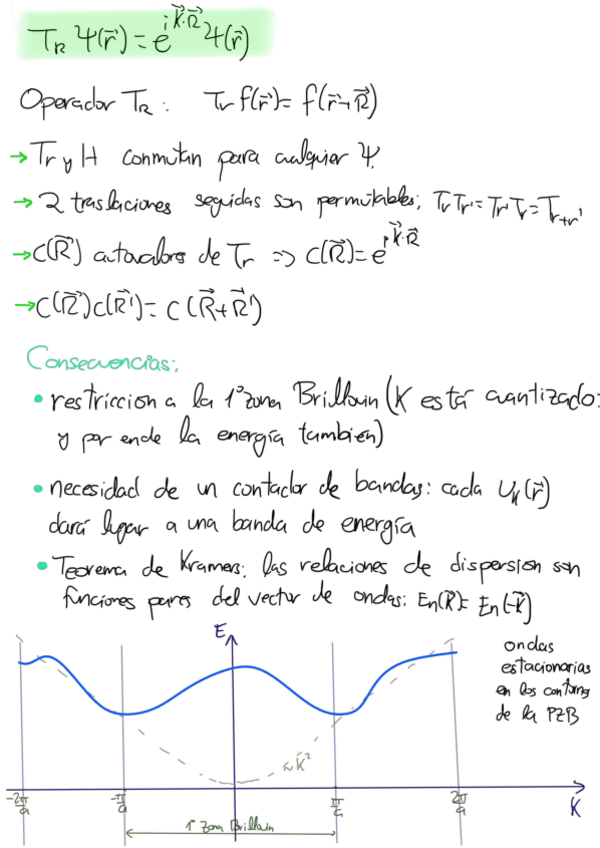 T_R Ψ(r⃗) = e^{i k⃗·R⃗} Ψ(r⃗)
Operador T_R: Tr f(r⃗) = f(r⃗+R⃗)
→ Tr y H conmutan para cualquier Ψ.
→ 2 traslaciones seguidas son permutables; Tr Tr' = Tr' Tr = T_{r+r'}
→ C(R⃗) autovalores de Tr => C(R⃗) = e^{i k⃗·R⃗}
→ C(R⃗)C(R⃗') = C(R⃗+R⃗')
Consecuencias:
• restriccion a la 1ª zona Brillouin (K está cuantizado:
y por ende la energía tambien)
• necesidad de un contador de bandas: cada U_k(r⃗)
dará lugar a una banda de energía
• Teorema de Kramers: las relaciones de dispersion son
funciones pares del vector de ondas: En(k⃗) = En(-k⃗)
E
ondas
estacionarias
en los contornos
de la PZB
~k²
-2π/a
-π/a
π/a
2π/a
K
1ª Zona Brillouin